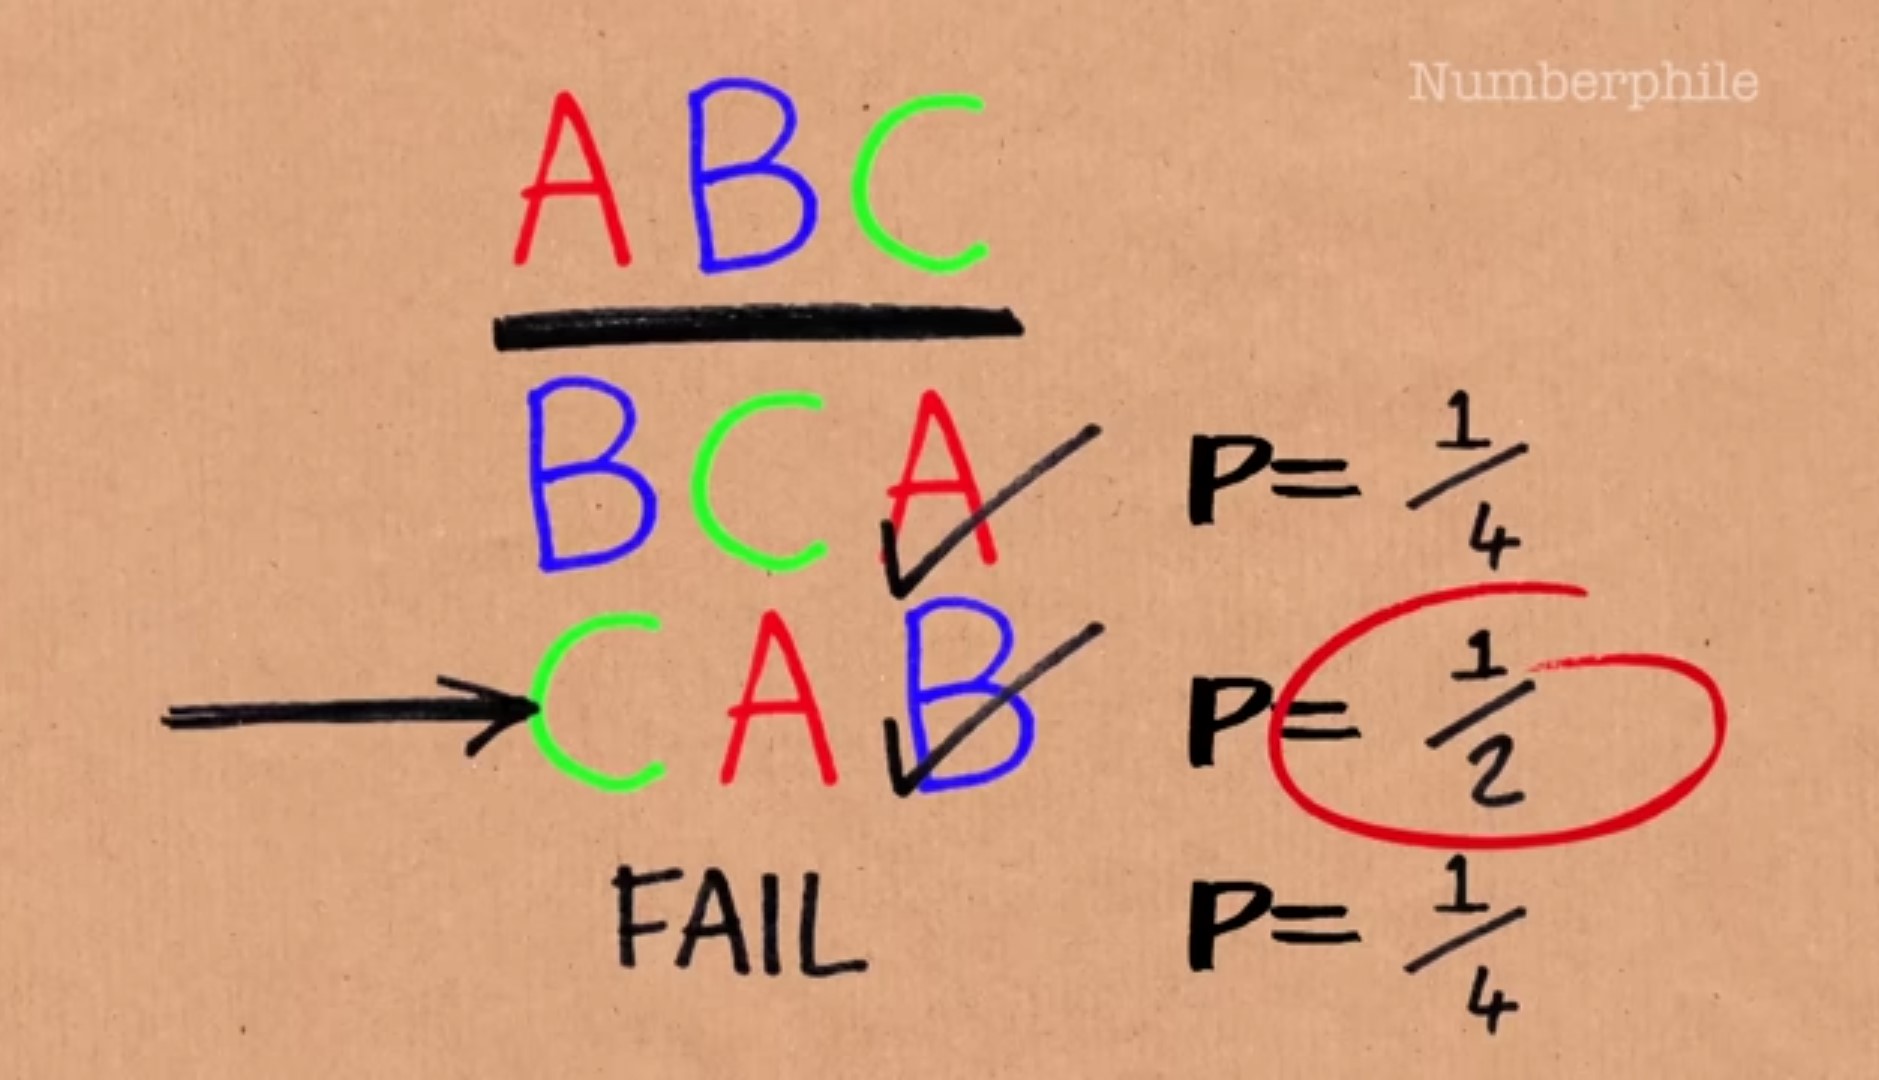 Numberphile
A B C
B C A P= 1/4
C A B P= 1/2
FAIL P= 1/4